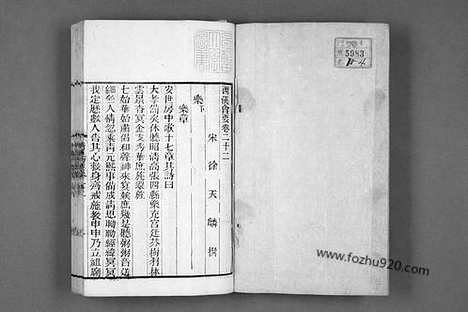 西漢會要卷二十二
宋 徐天麟 撰
樂下
樂章
安世房中歌十七章其詩曰
大孝備矣休德昭清高張四縣樂充宮廷芬樹羽林
雲景杳冥金支秀華庶旄翠旌
七始華始肅倡和聲神來宴娭庶幾是聽粥粥音送
細齊人情忽乘青玄熙事備成清思眑眑經緯冥冥
我定歷數人告其心敕身齊戒施教申申乃立祖廟
5983
www.fozhu920.com